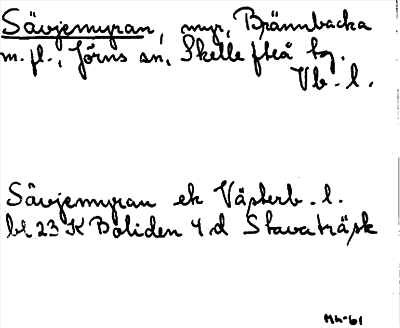 Sävjemyran, myr, Brännbacka
m.fl., Jörns sn, Skellefteå tg.
Vb.l.
Sävjemyran ek Västerb.l.
bl 23 K Boliden 4 d Stavaträsk